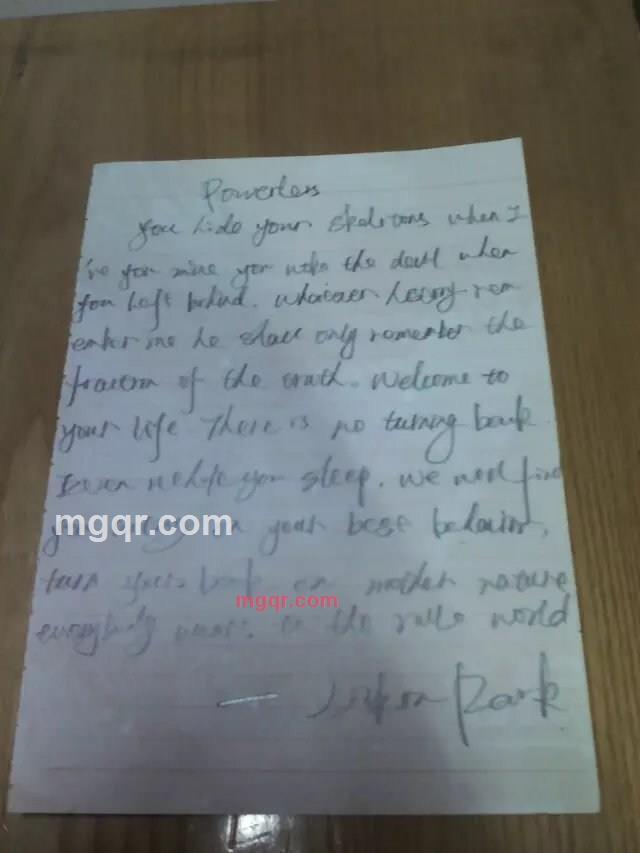 Powerless
You hide your skeletons when I
've you mine you woke the devil when
you left behind. Whatever history rem
ember me he shall only remember the
fraction of the truth. Welcome to
your life There is no turning back
Even while you sleep. We will find
mgqr.com
you on your best behavior,
turn your back on mother nature
mgqr.com
everybody to the rule world
— Linkin Park